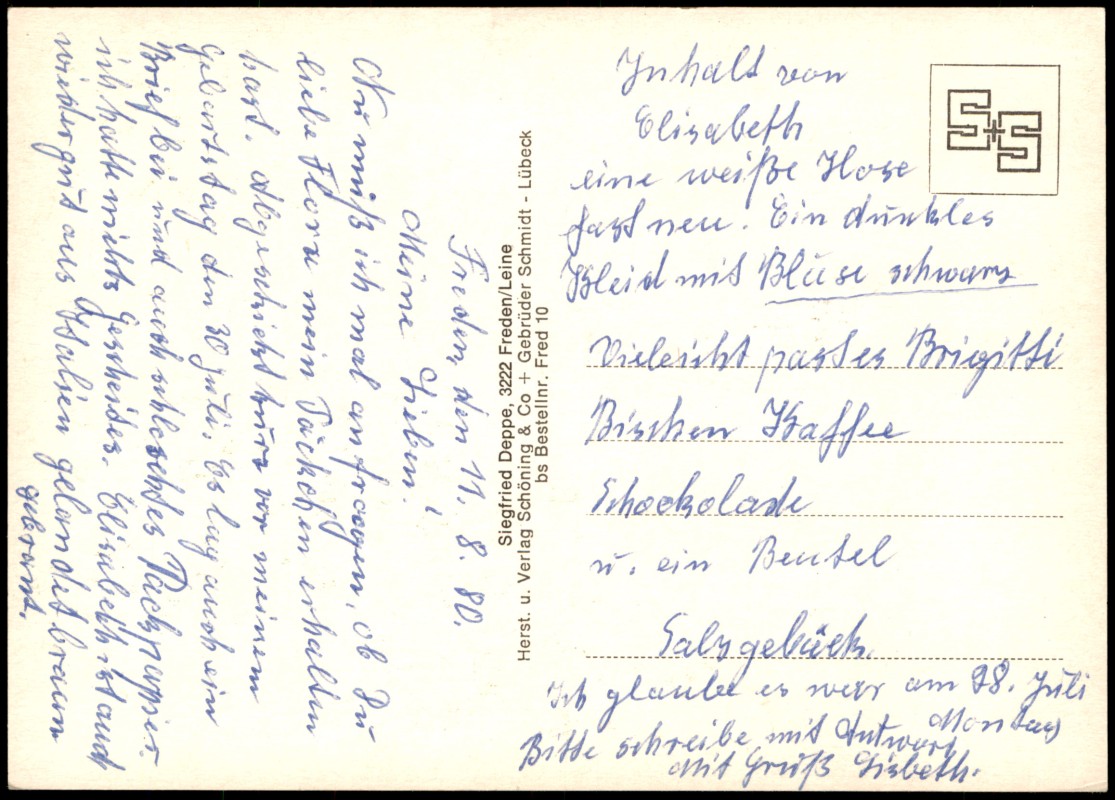 Freden, den 11. 8. 80.
Meine Lieben!
Nu muß ich mal anfragen, ob Du
liebe Flora mein Päckchen erhalten
hast. Abgeschickt kurz vor meinem
Geburtstag den 30 Juli. Es lag auch ein
Brief bei und auch schlechtes Packpapier.
ich hatte nichts Gescheites. Elisabeth ist auch
wieder gut aus Italien gelandet braun
gebrant.
Siegfried Deppe, 3222 Freden/Leine
Herst. u. Verlag Schöning & Co + Gebrüder Schmidt - Lübeck
bs Bestellnr. Fred 10
S+S
Inhalt von
Elisabeth
eine weiße Hose
fast neu. Ein dunkles
Kleid mit Bluse schwarz
Vieleicht past es Brigitti
Bischen Kaffee
Schockolade
u. ein Beutel
Salzgebäck.
Ich glaube es war am 28. Juli
Montag
Bitte schreibe mit Antwort
Mit Gruß Lisbeth.